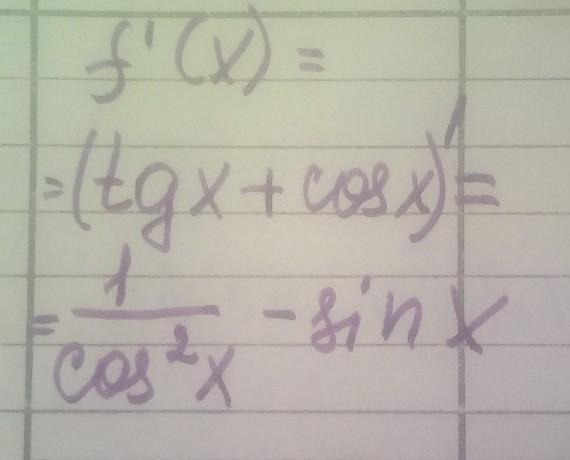 f'(x) =
=(tgx + cosx)'=
= 1/cos²x - sin x